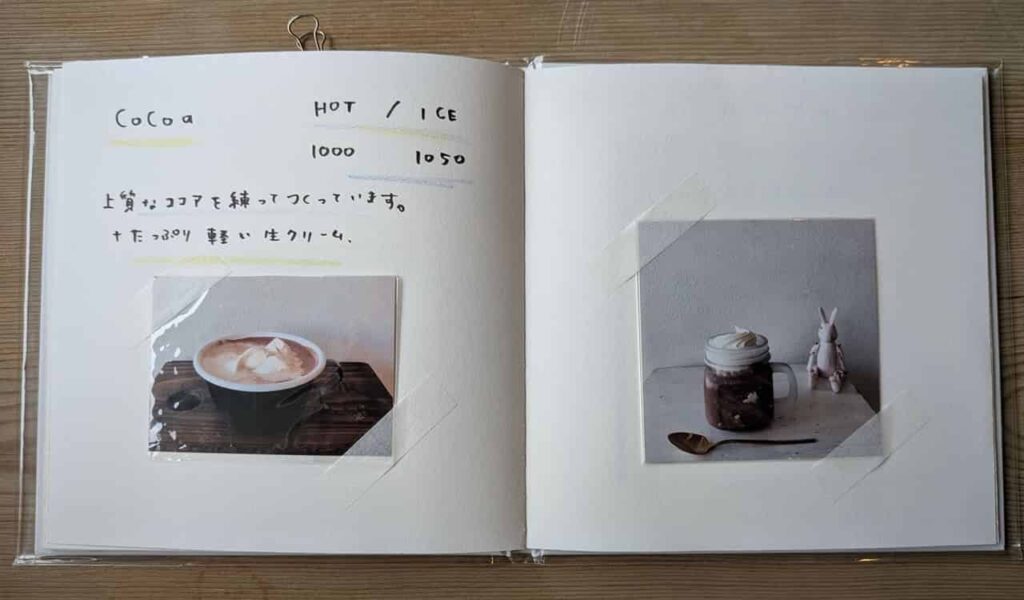 CoCoa
HOT / ICE
1000 1050
上質なココアを練ってつくっています。
+たっぷり 軽い 生クリーム、